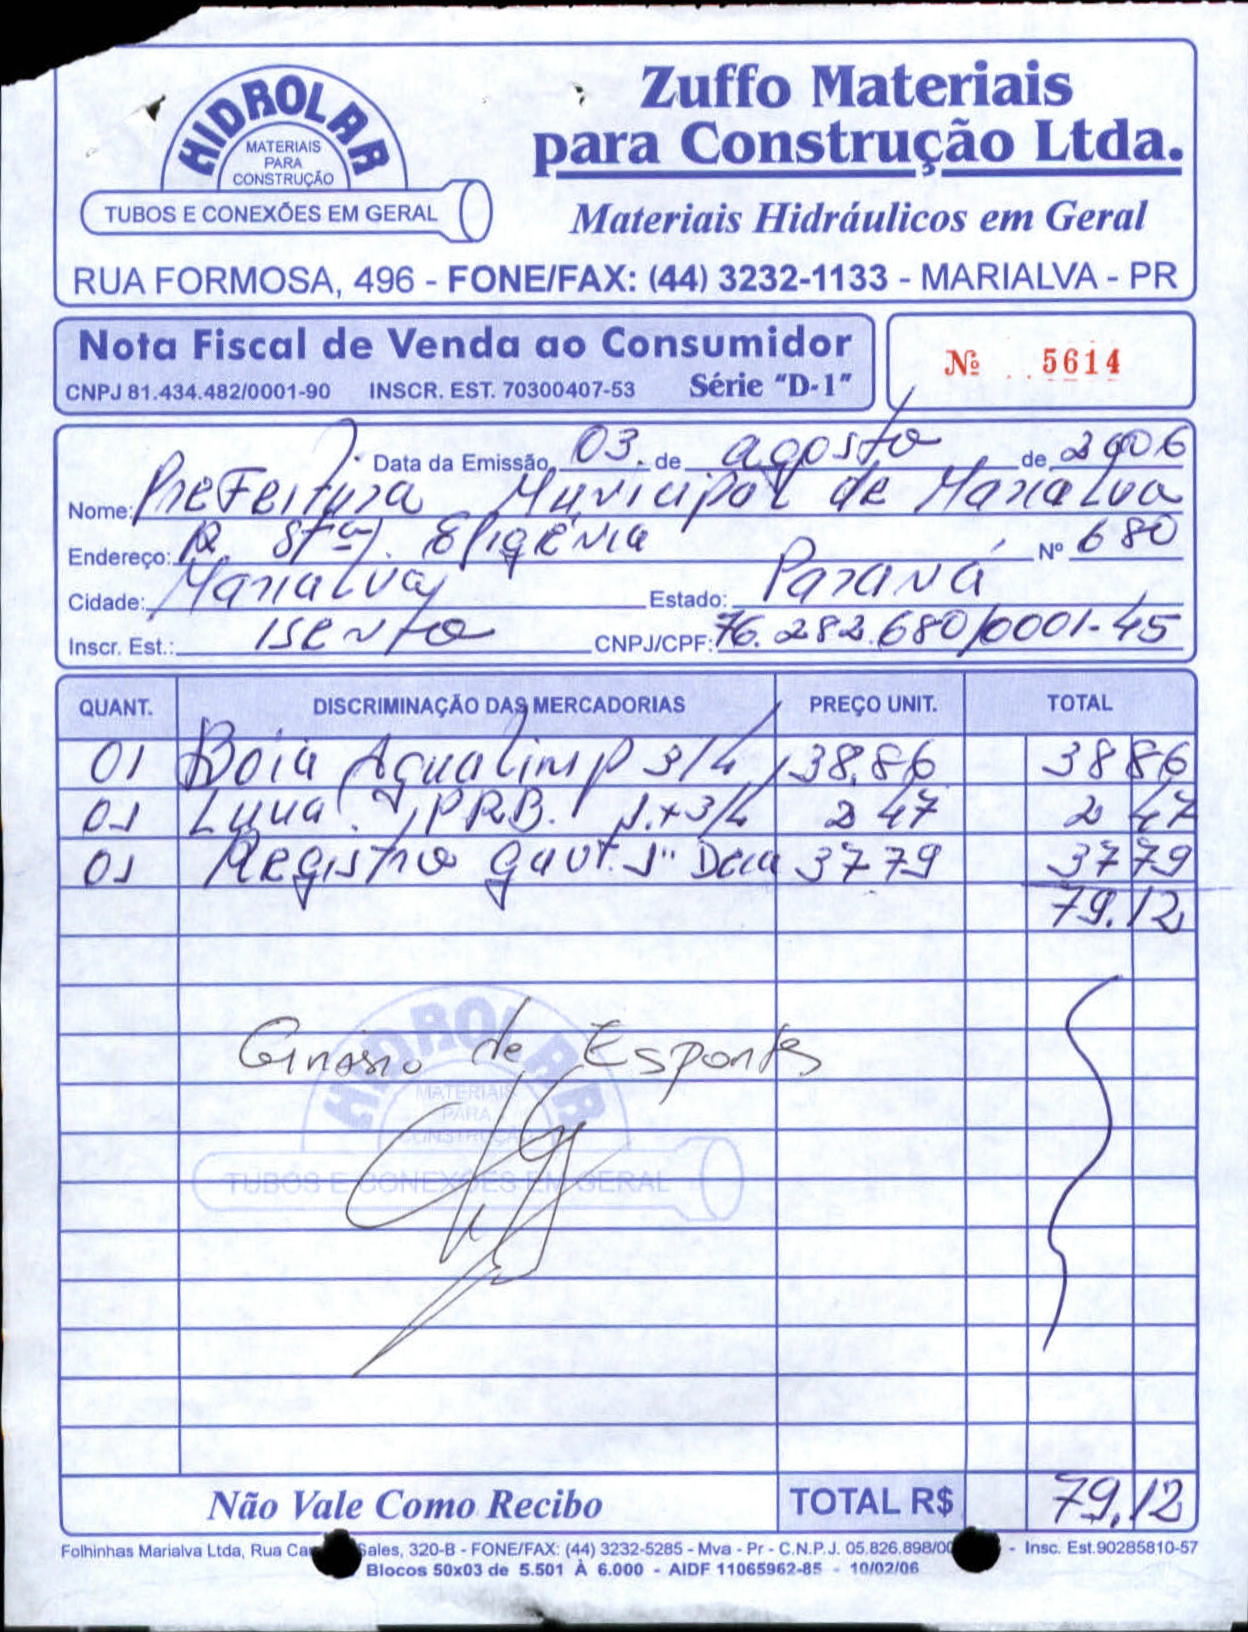 HIDROLAR
MATERIAIS
PARA
CONSTRUÇÃO
TUBOS E CONEXÕES EM GERAL
Zuffo Materiais
para Construção Ltda.
Materiais Hidráulicos em Geral
RUA FORMOSA, 496 - FONE/FAX: (44) 3232-1133 - MARIALVA - PR
Nota Fiscal de Venda ao Consumidor
CNPJ 81.434.482/0001-90 INSCR. EST. 70300407-53 Série "D-1"
Nº 5614
Data da Emissão, 03 de agosto de 2006
Nome: Prefeitura Municipal de Marialva
Endereço: R. Stª. Efigênia Nº 680
Cidade: Marialva Estado: Paraná
Inscr. Est.: Isento CNPJ/CPF: 76.282.680/0001-45
QUANT. DISCRIMINAÇÃO DAS MERCADORIAS PREÇO UNIT. TOTAL
01 Boia Agualimp 3/4 38,86 38 86
01 Luva PRB. 1x3/4 2 47 2 47
01 Registro gavt. 1" Deca 37 79 37 79
79,12
Ginásio de Esportes
HIDROLAR
MATERIAIS
PARA
CONSTRUÇÃO
TUBOS E CONEXÕES EM GERAL
Não Vale Como Recibo TOTAL R$ 79,12
Folhinhas Marialva Ltda, Rua Sales, 320-B - FONE/FAX: (44) 3232-5285 - Mva - Pr - C.N.P.J. 05.826.898/00 - Insc. Est.90285810-57
Blocos 50x03 de 5.501 À 6.000 - AIDF 11065962-85 - 10/02/06